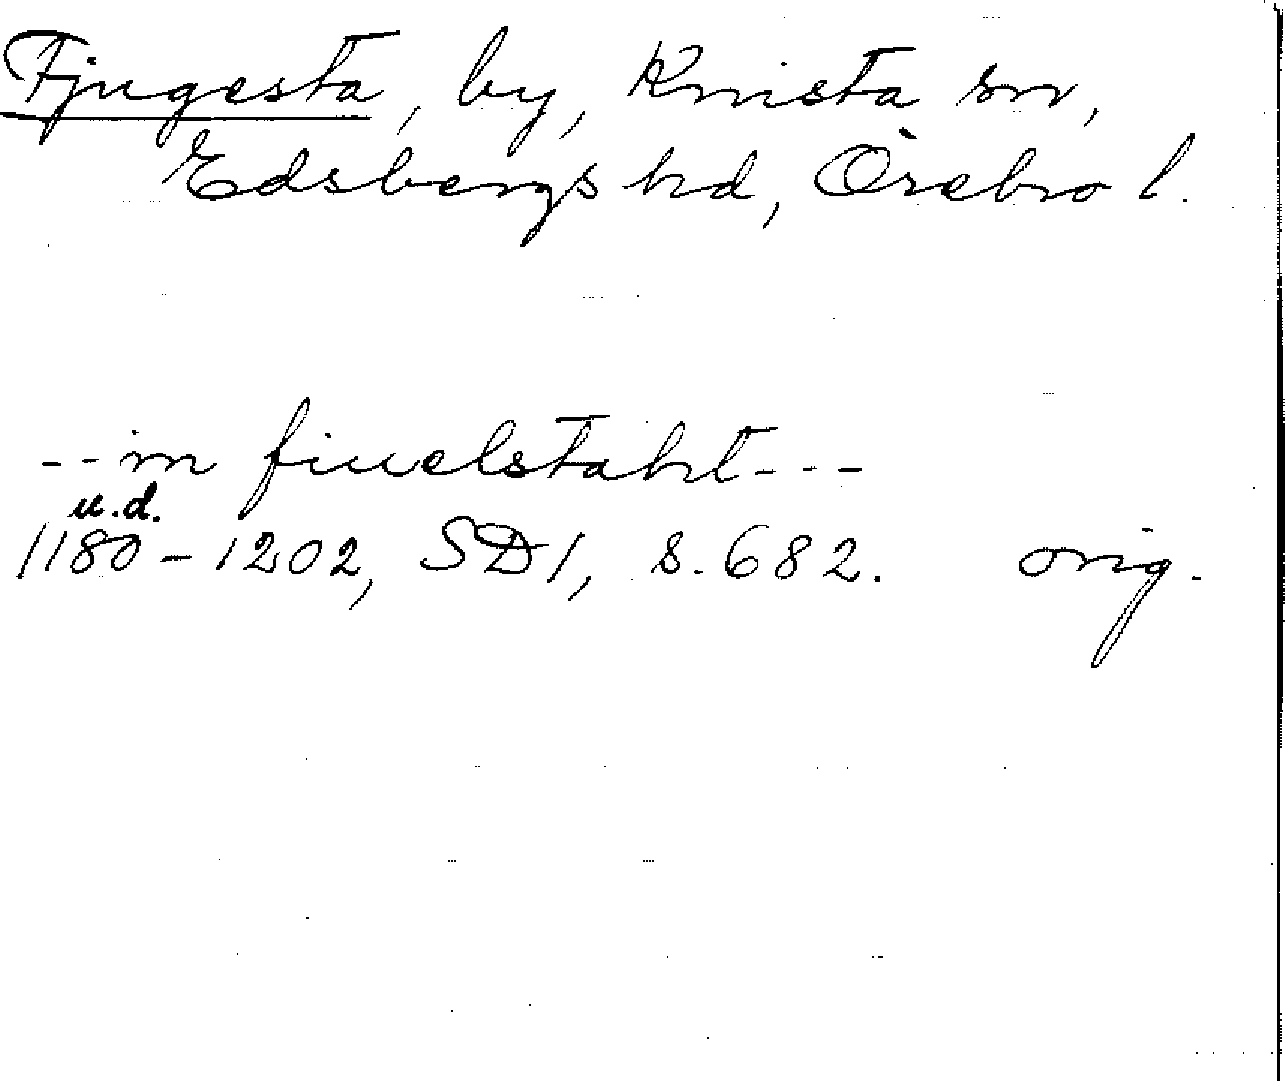 Fjugesta, by, Knista sn,
Edsbergs hd, Örebro l.
--in fiuelstaht---
u.d.
1180-1202, SD1, s. 682. orig.